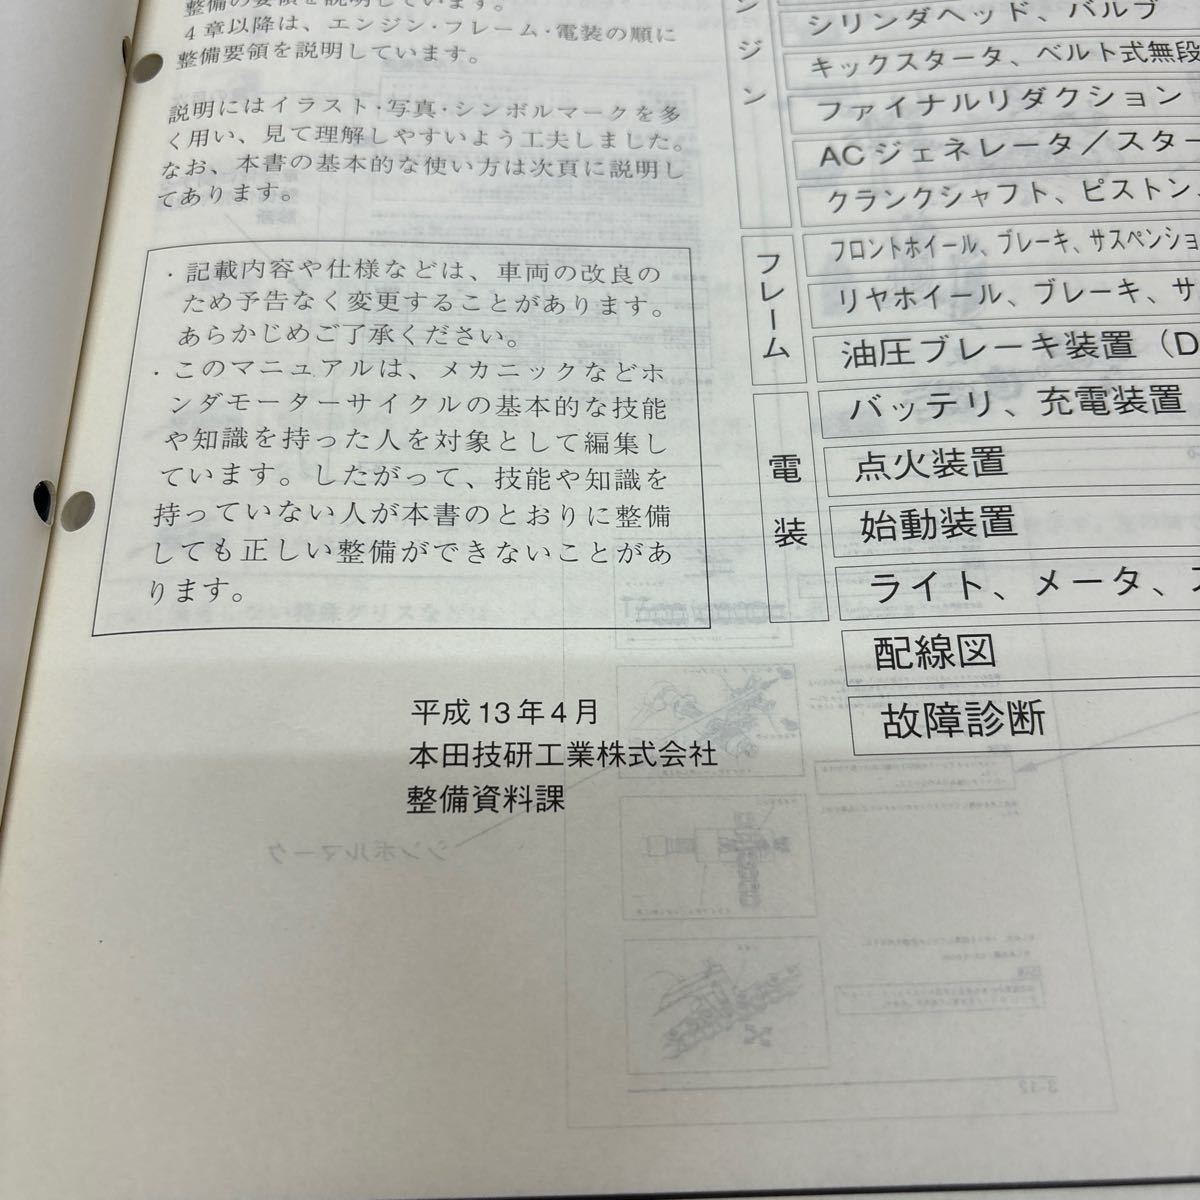 整備の要領を説明しています。
4章以降は、エンジン・フレーム・電装の順に
整備要領を説明しています。
説明にはイラスト・写真・シンボルマークを多
く用い、見て理解しやすいよう工夫しました。
なお、本書の基本的な使い方は次頁に説明し
てあります。
・記載内容や仕様などは、車両の改良の
ため予告なく変更することがあります。
あらかじめご了承ください。
・このマニュアルは、メカニックなどホ
ンダモーターサイクルの基本的な技能
や知識を持った人を対象として編集し
ています。したがって、技能や知識を
持っていない人が本書のとおりに整備
しても正しい整備ができないことがあ
ります。
平成13年4月
本田技研工業株式会社
整備資料課
ンジン
シリンダヘッド、バルブ
キックスタータ、ベルト式無段
ファイナルリダクション
ACジェネレータ／スター
クランクシャフト、ピストン、
フレーム
フロントホイール、ブレーキ、サスペンショ
リヤホイール、ブレーキ、サ
油圧ブレーキ装置（D
電装
バッテリ、充電装置
点火装置
始動装置
ライト、メータ、ス
配線図
故障診断
シンボルマーク
3-12